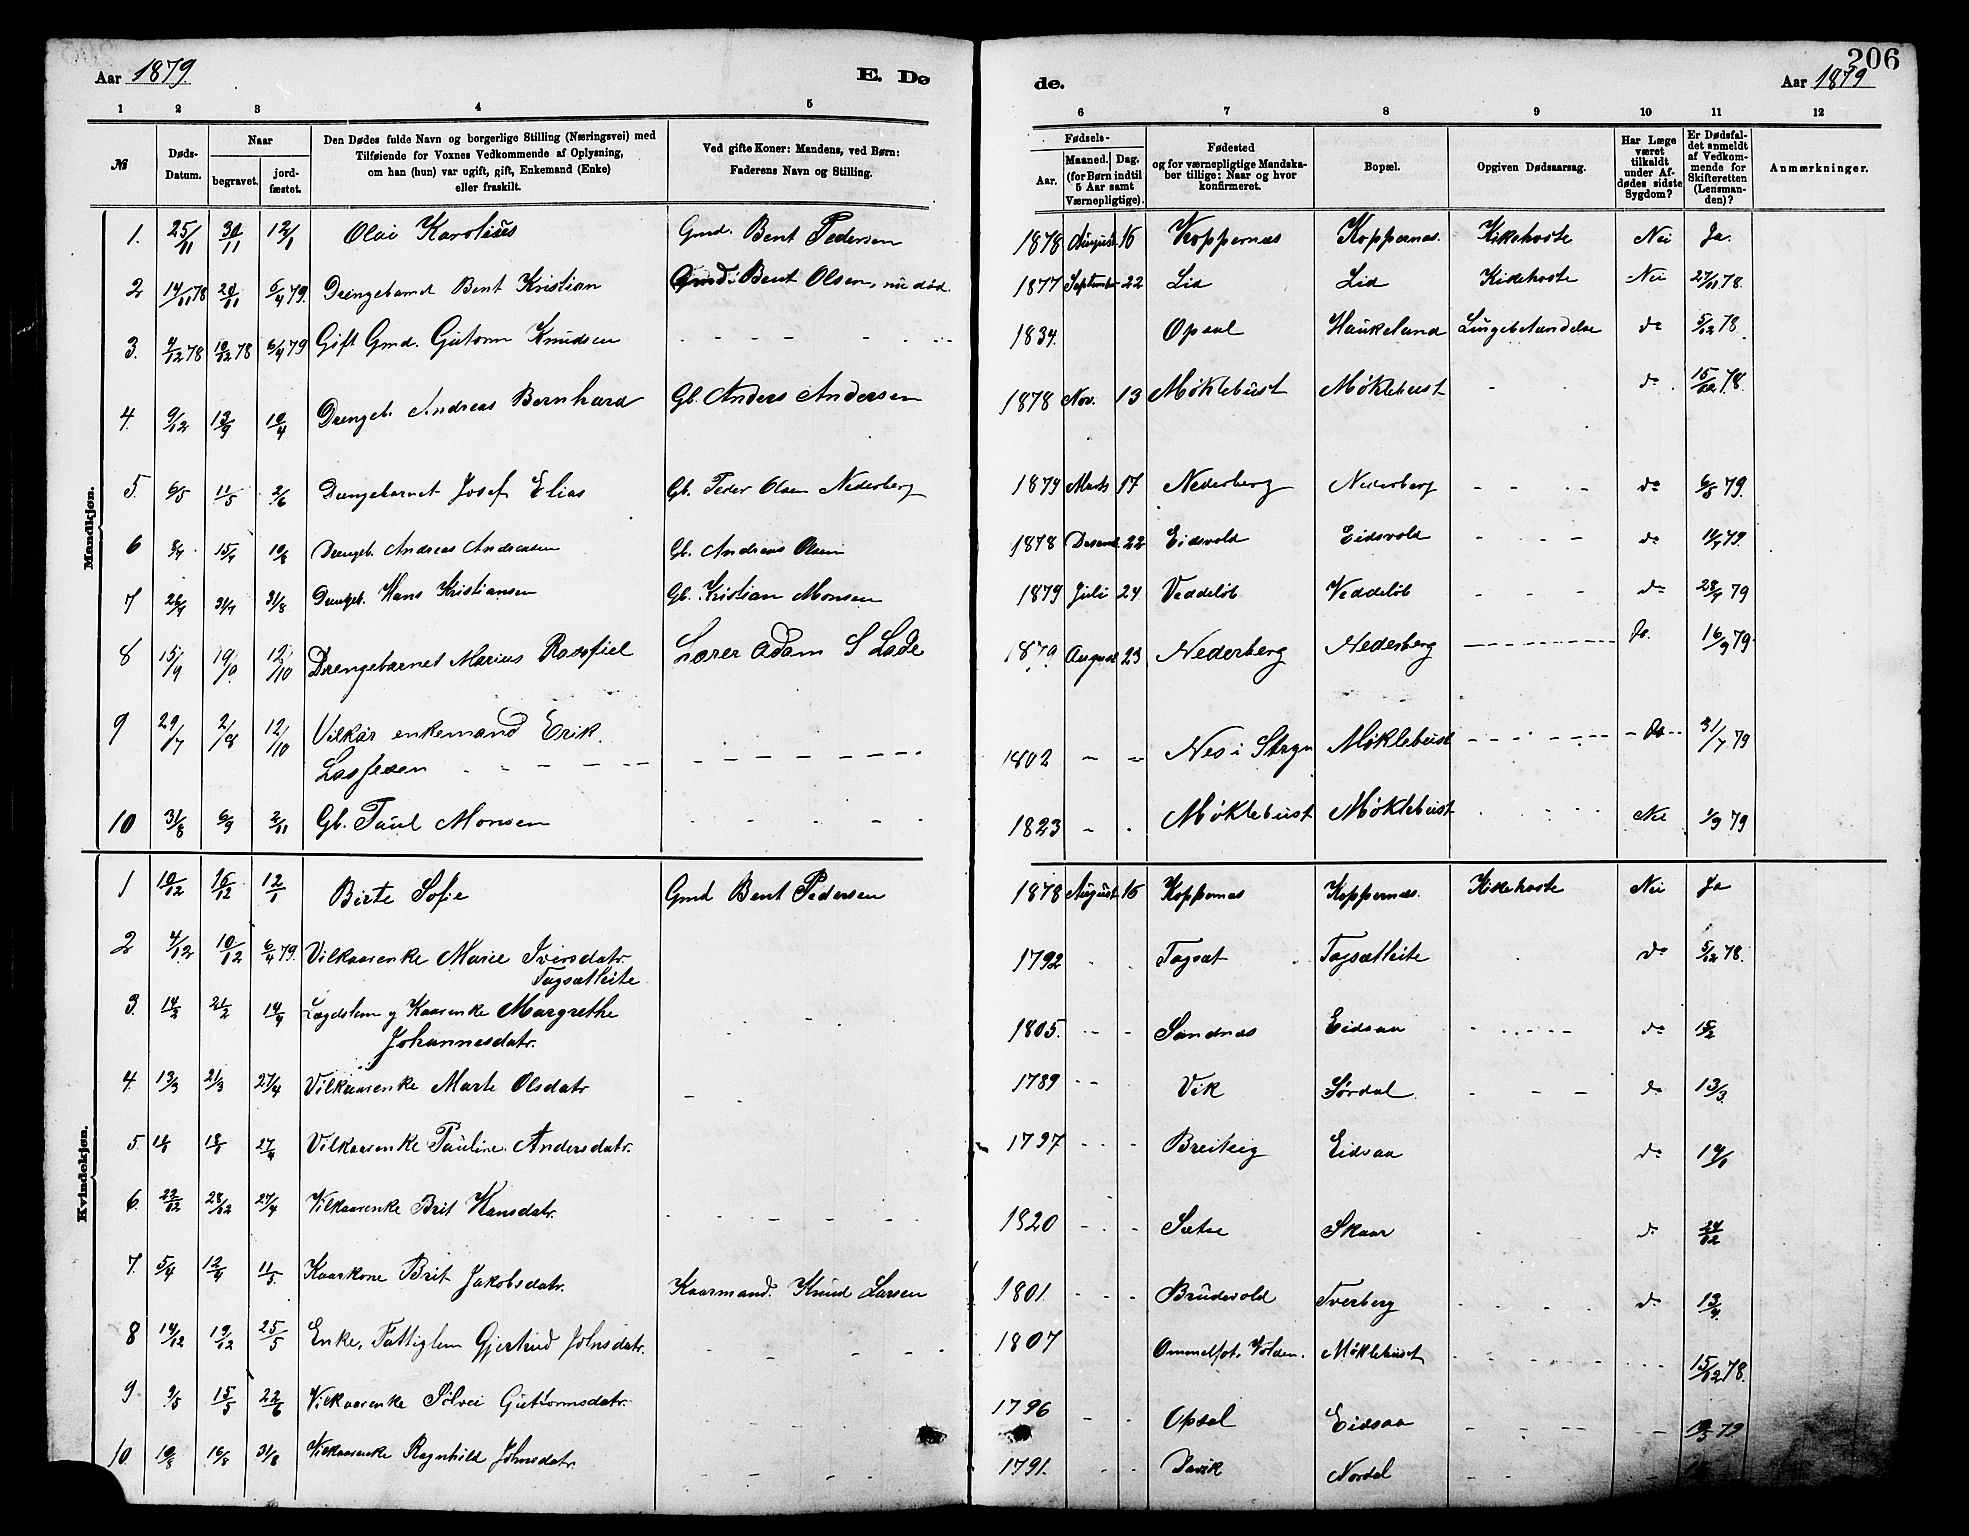 206
Aar 1879. E. Dø de. Aar 1879
1 2 3 4 5 6 7 8 9 10 11 12
№
Døds-Datum.
Naar
begravet.
jordfæstet.
Den Dødes fulde Navn og borgerlige Stilling (Næringsvei) med
Tilføiende for Voxnes Vedkommende af Oplysning,
om han (hun) var ugift, gift, Enkemand (Enke)
eller fraskilt.
Ved gifte Koner: Mandens, ved Børn:
Faderens Navn og Stilling.
Fødsels-
Aar.
Maaned. Dag.
(for Børn indtil
5 Aar samt
Værnepligtige).
Fødested
og for værnepligtige Mandska-
ber tillige: Naar og hvor
konfirmeret.
Bopæl.
Opgiven Dødsaarsag.
Har Læge
været
tilkaldt
under Af-
dødes sidste
Sygdom?
Er Dødsfal-
det anmeldt
af Vedkom-
mende for
Skifteretten
(Lensman-
den)?
Anmærkninger.
Mandkjøn.
1. 25/11 30/11 12/1 Olai Karolius Gmd. Bent Pedersen 1878 August 16 Koppernæs Koppernæs. Kikehoste Nei Ja.
2 14/11 78 20/11 6/4 79. Drengebarnd Bent Kristian Gmd. Bent Olsen, nu død. 1877 September 22 Lid Lid Kidehoste Nei 27/11 78.
3. 4/12 78 10/12 78 6/4 79 Gift Gmd. Gutorm Knudsen 1834. Opsal Haukeland Lungebetændelse do 5/12 78.
4. 9/12 10/4 Drengeb. Andreas Bernhard Gb. Anders Andersen 1878 Nov. 13 Møklebust Møklebust do 15/12 78.
5. 6/5 11/5 2/6 Drengebarnet Josef Elias Gb. Peder Olsen Nederberg 1879 Marts 17 Nederberg Nederberg do 6/5 79.
6 15/4 10/8 Drengeb. Andreas Andreasen Gb. Andreas Olsen 1878 Desemb. 22 Eidsvold Eidsvold do 79.
7 26/7 31/7 31/8 Drengeb. Hans Kristiansen Gb. Kristian Monsen 1879 Juli 24 Veddeløb Veddeløb do 28/7 79
8 15/9 12/10 Drengebarnet Marius Rasofiel Lærer Adam S Lade 1879 August 23 Nederberg Nederberg Ja. 16/9 79
9 29/7 2/8 12/10 Vilkår enkemand Erik.
Lassesen 1802 Nes i Stryn Møklebust do 31/7 79
10 31/8 6/9 2/11 Gb. Paul Monsen 1823 Møklebust Møklebust Nei 1/9 79
Kvindekjøn.
1 10/12 16/12 12/1 Birte Sofie Gmd Bent Pedersen 1878 August 16 Koppernæs Koppernæs. Kidehoste Nei Ja
2 4/12 10/12 6/4 79. Vilkaarenke Marie Iversdatr.
Tagsætleite 1792 Tagsæt Tagsætleite do 5/12 78.
3. 14/2 21/2 Lægdslem og Kaarenke Margrethe
Johannesdatr. 1805. Sandnæs Eidsaa do 15/2
4. 13/3 21/3 27/4 Vilkaarenke Marte Olsdatr 1789 Vik Sørdal. do 13/3.
5. 27/4 Vilkaarenke Pauline Andersdatr. 1797 Breiteig Eidsaa do
6. 22/12 28/12 27/4 Vilkaarenke Brit Hansdatr. 1820 Sætre Skaar do 24/12
7. 5/4 12/4 11/5. Kaarkone Brit Jakobsdatr. Kaarmand. Knud Larsen 1801. Brudevold Tverberg do
8 14/12 19/12 25/5 Enke, Fattiglem Gjertrud Johnsdatr. 1807 Ommelfot, Volden. Møklebust 15/12 78.
9 9/5 15/5 22/6 Vilkaarenke Sølvei Guttormsdatr. 1796 Opsal Eidsaa 79
10 10/8 16/8 31/8 Vilkaarenke Ragnhild Johnsdatr. 1791. Davik Nordal